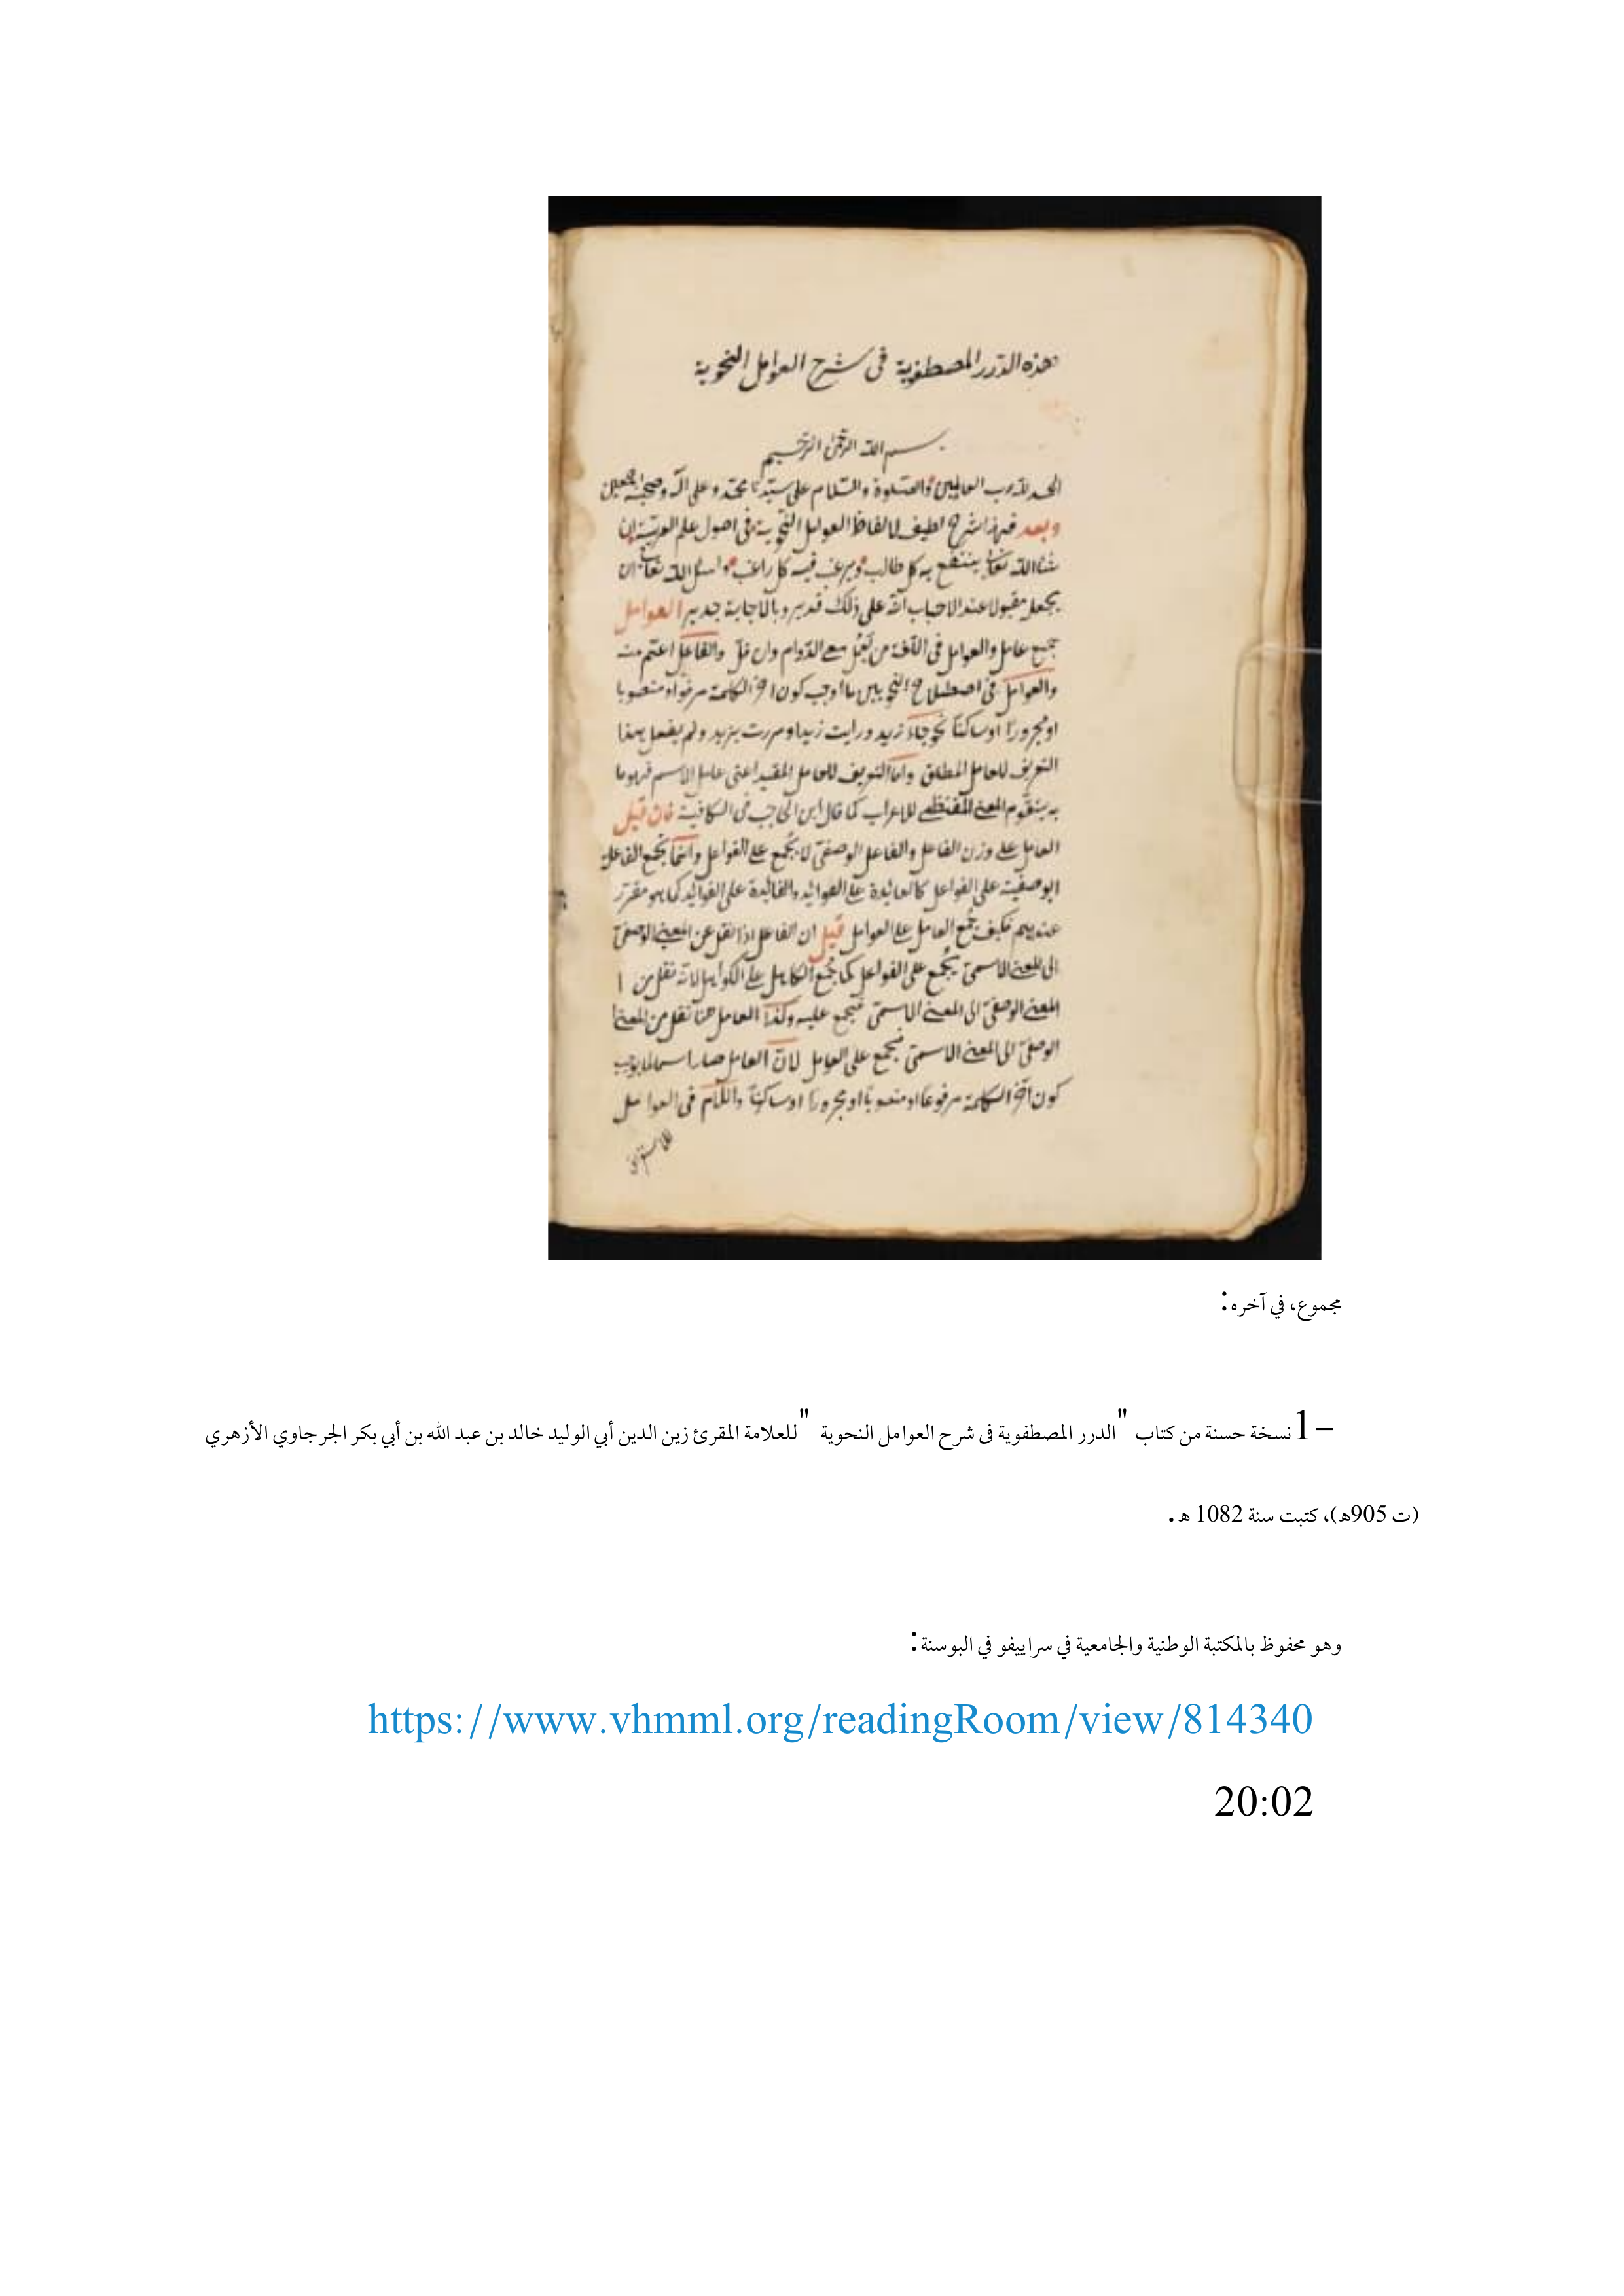 هذه الدّرر المصطفوية فى شرح العوامل النحوية
بسم اللّه الرحمن الرحيم
الحمد للّه رب العالمين والصّلوة والسّلام على سيّدنا محمّد وعلى آله وصحبه اجمعين
وبعد فهذا شرح لطيف لالفاظ العوامل النّحوية فى اصول علم العربيّة ان
شاء اللّه تعالى ينتفع به كل طالب ويرغب فيه كل راغب واسئل اللّه تعالى ان
يجعل مقبولا عند الاحباب انّه على ذلك قدير وبالاجابة جدير العوامل
جمع عامل والعوامل فى اللّغة من يَعْمَل مع الدّوام وان قلّ والفاعل اعمّ منه
والعوامل فى اصطلاح النّحويين ما اوجب كون اخر الكلمة مرفوعا او منصوبا
او مجرورا او ساكنا نحو جاء زيد ورايت زيدا ومررت بزيد ولم يفعل هذا
التعريف للعامل المطلق وامّا التعريف للعامل المقيد اعنى عامل الاسم فهو ما
به يتقوّم المعنى المقتضى للاعراب كما قال ابن الحاجب فى الكافية فان قيل
العامل على وزن الفاعل والفاعل الوصفىّ لا يُجمع على الفواعل وانّما يجمع الفاعلة
الوصفية على الفواعل كالعائدة على العوائد والفائدة على الفوائد كما هو مقرّر
عندهم فكيف جُمع العامل على العوامل قيل ان الفاعل اذا نقل عن المعنى الوصفىّ
الى المعنى الاسمىّ يُجمع على الفواعل كما جُمع الكاهل على الكواهل لانّه نقل من ا
المعنى الوصفىّ الى المعنى الاسمىّ فيجمع عليه وكذا العامل هنا نقل من المعنى
الوصفىّ الى المعنى الاسمىّ فيجمع على العوامل لانّ العامل صار اسما لما يوجب
كون آخر الكلمة مرفوعا او منصوبًا او مجرورا او ساكنًا واللّام فى العوامل
للاستغراق
مجموع، في آخره:
1- نسخة حسنة من كتاب "الدرر المصطفوية فى شرح العوامل النحوية" للعلامة المقرئ زين الدين أبي الوليد خالد بن عبد الله بن أبي بكر الجرجاوي الأزهري
(ت 905هـ)، كتبت سنة 1082 هـ.
وهو محفوظ بالمكتبة الوطنية والجامعية في سراييفو في البوسنة:
https://www.vhmml.org/readingRoom/view/814340
20:02